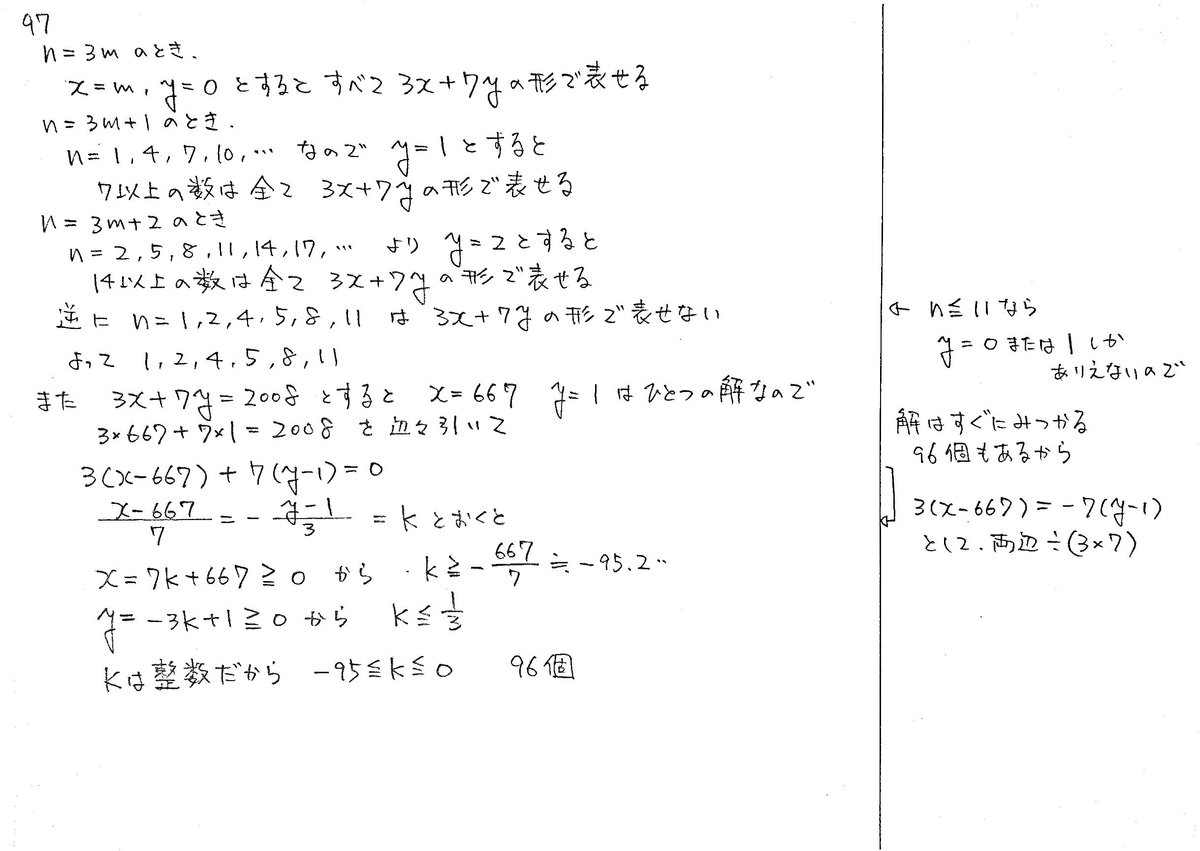 97
n=3m のとき.
x=m, y=0 とすると すべて 3x+7y の形で表せる
n=3m+1 のとき.
n=1,4,7,10,… なので y=1 とすると
7以上の数は全て 3x+7y の形で表せる
n=3m+2 のとき
n=2,5,8,11,14,17,… より y=2 とすると
14以上の数は全て 3x+7y の形で表せる
逆に n=1,2,4,5,8,11 は 3x+7y の形で表せない
よって 1,2,4,5,8,11
また 3x+7y=2008 とすると x=667 y=1 はひとつの解なので
3×667+7×1=2008 を辺々引いて
3(x-667)+7(y-1)=0
(x-667)/7 = -(y-1)/3 = k とおくと
x=7k+667≧0 から k≧-667/7≒-95.2‥
y=-3k+1≧0 から k≦1/3
kは整数だから -95≦k≦0 96個
← n≦11 なら
y=0 または 1 しか
ありえないので
解はすぐにみつかる
96個もあるから
3(x-667)=-7(y-1)
として、両辺÷(3×7)